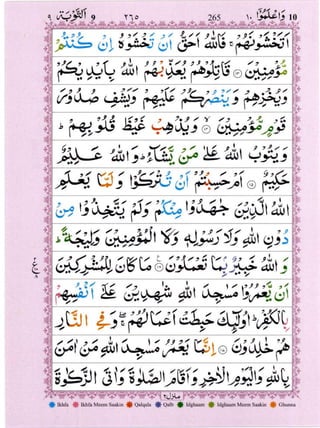 التَّوْبَة ٩ 9 ٢٦٥ 265 وَاعْلَمُوْٓا ١٠ 10
اَتَخْشَوْنَهُمْ ۚ فَاللّٰهُ اَحَقُّ اَنْ تَخْشَوْهُ اِنْ كُنْتُمْ
مُّؤْمِنِيْنَ ۝ قَاتِلُوْهُمْ يُعَذِّبْهُمُ اللّٰهُ بِاَيْدِيْكُمْ
وَيُخْزِهِمْ وَيَنْصُرْكُمْ عَلَيْهِمْ وَيَشْفِ صُدُوْرَ
قَوْمٍ مُّؤْمِنِيْنَ ۝ وَيُذْهِبْ غَيْظَ قُلُوْبِهِمْ ؕ
وَيَتُوْبُ اللّٰهُ عَلٰى مَنْ يَّشَآءُ ؕ وَاللّٰهُ عَلِيْمٌ
حَكِيْمٌ ۝ اَمْ حَسِبْتُمْ اَنْ تُتْرَكُوْا وَلَمَّا يَعْلَمِ
اللّٰهُ الَّذِيْنَ جٰهَدُوْا مِنْكُمْ وَلَمْ يَتَّخِذُوْا مِنْ
دُوْنِ اللّٰهِ وَلَا رَسُوْلِهٖ وَلَا الْمُؤْمِنِيْنَ وَلِيْجَةً ؕ
وَاللّٰهُ خَبِيْرٌۢ بِمَا تَعْمَلُوْنَ ۝ مَا كَانَ لِلْمُشْرِكِيْنَ
اَنْ يَّعْمُرُوْا مَسٰجِدَ اللّٰهِ شٰهِدِيْنَ عَلٰٓى اَنْفُسِهِمْ
بِالْكُفْرِ ؕ اُولٰٓئِكَ حَبِطَتْ اَعْمَالُهُمْ ۚ وَفِى النَّارِ
هُمْ خٰلِدُوْنَ ۝ اِنَّمَا يَعْمُرُ مَسٰجِدَ اللّٰهِ مَنْ اٰمَنَ
بِاللّٰهِ وَالْيَوْمِ الْاٰخِرِ وَاَقَامَ الصَّلٰوةَ وَاٰتَى الزَّكٰوةَ
منزل ٢
Ikhfa Ikhfa Meem Saakin Qalqala Qalb Idghaam Idghaam Meem Saakin Ghunna